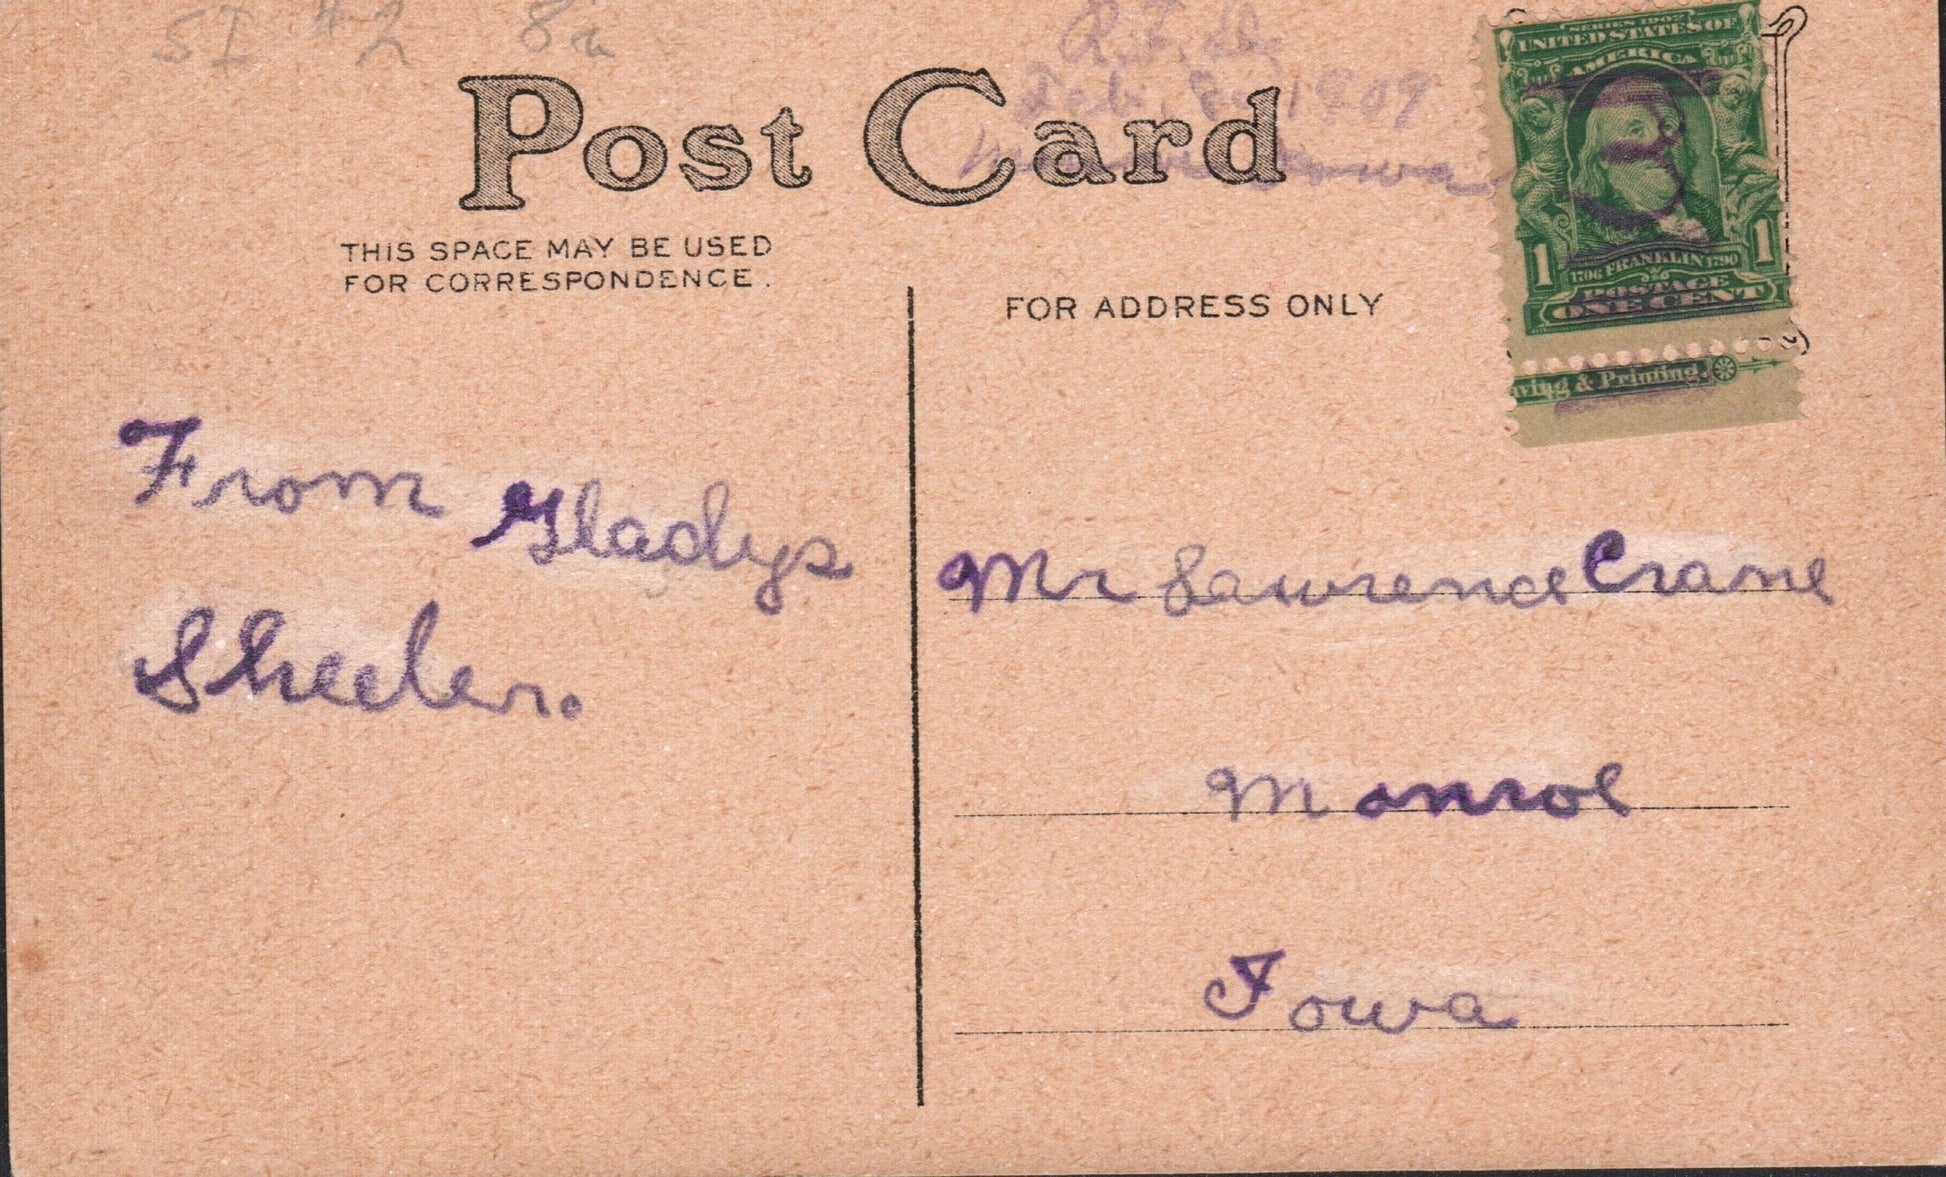 SI #2 8a
R.F.D.
Feb. 8, 1909
Iowa
Post Card
THIS SPACE MAY BE USED
FOR CORRESPONDENCE.
FOR ADDRESS ONLY
SERIES 1902
UNITED STATES OF
AMERICA
1 1
1706 FRANKLIN 1790
POSTAGE
ONE CENT
ving & Printing.
From Gladys
Sheeler.
Mr Lawrence Crane
Monroe
Iowa